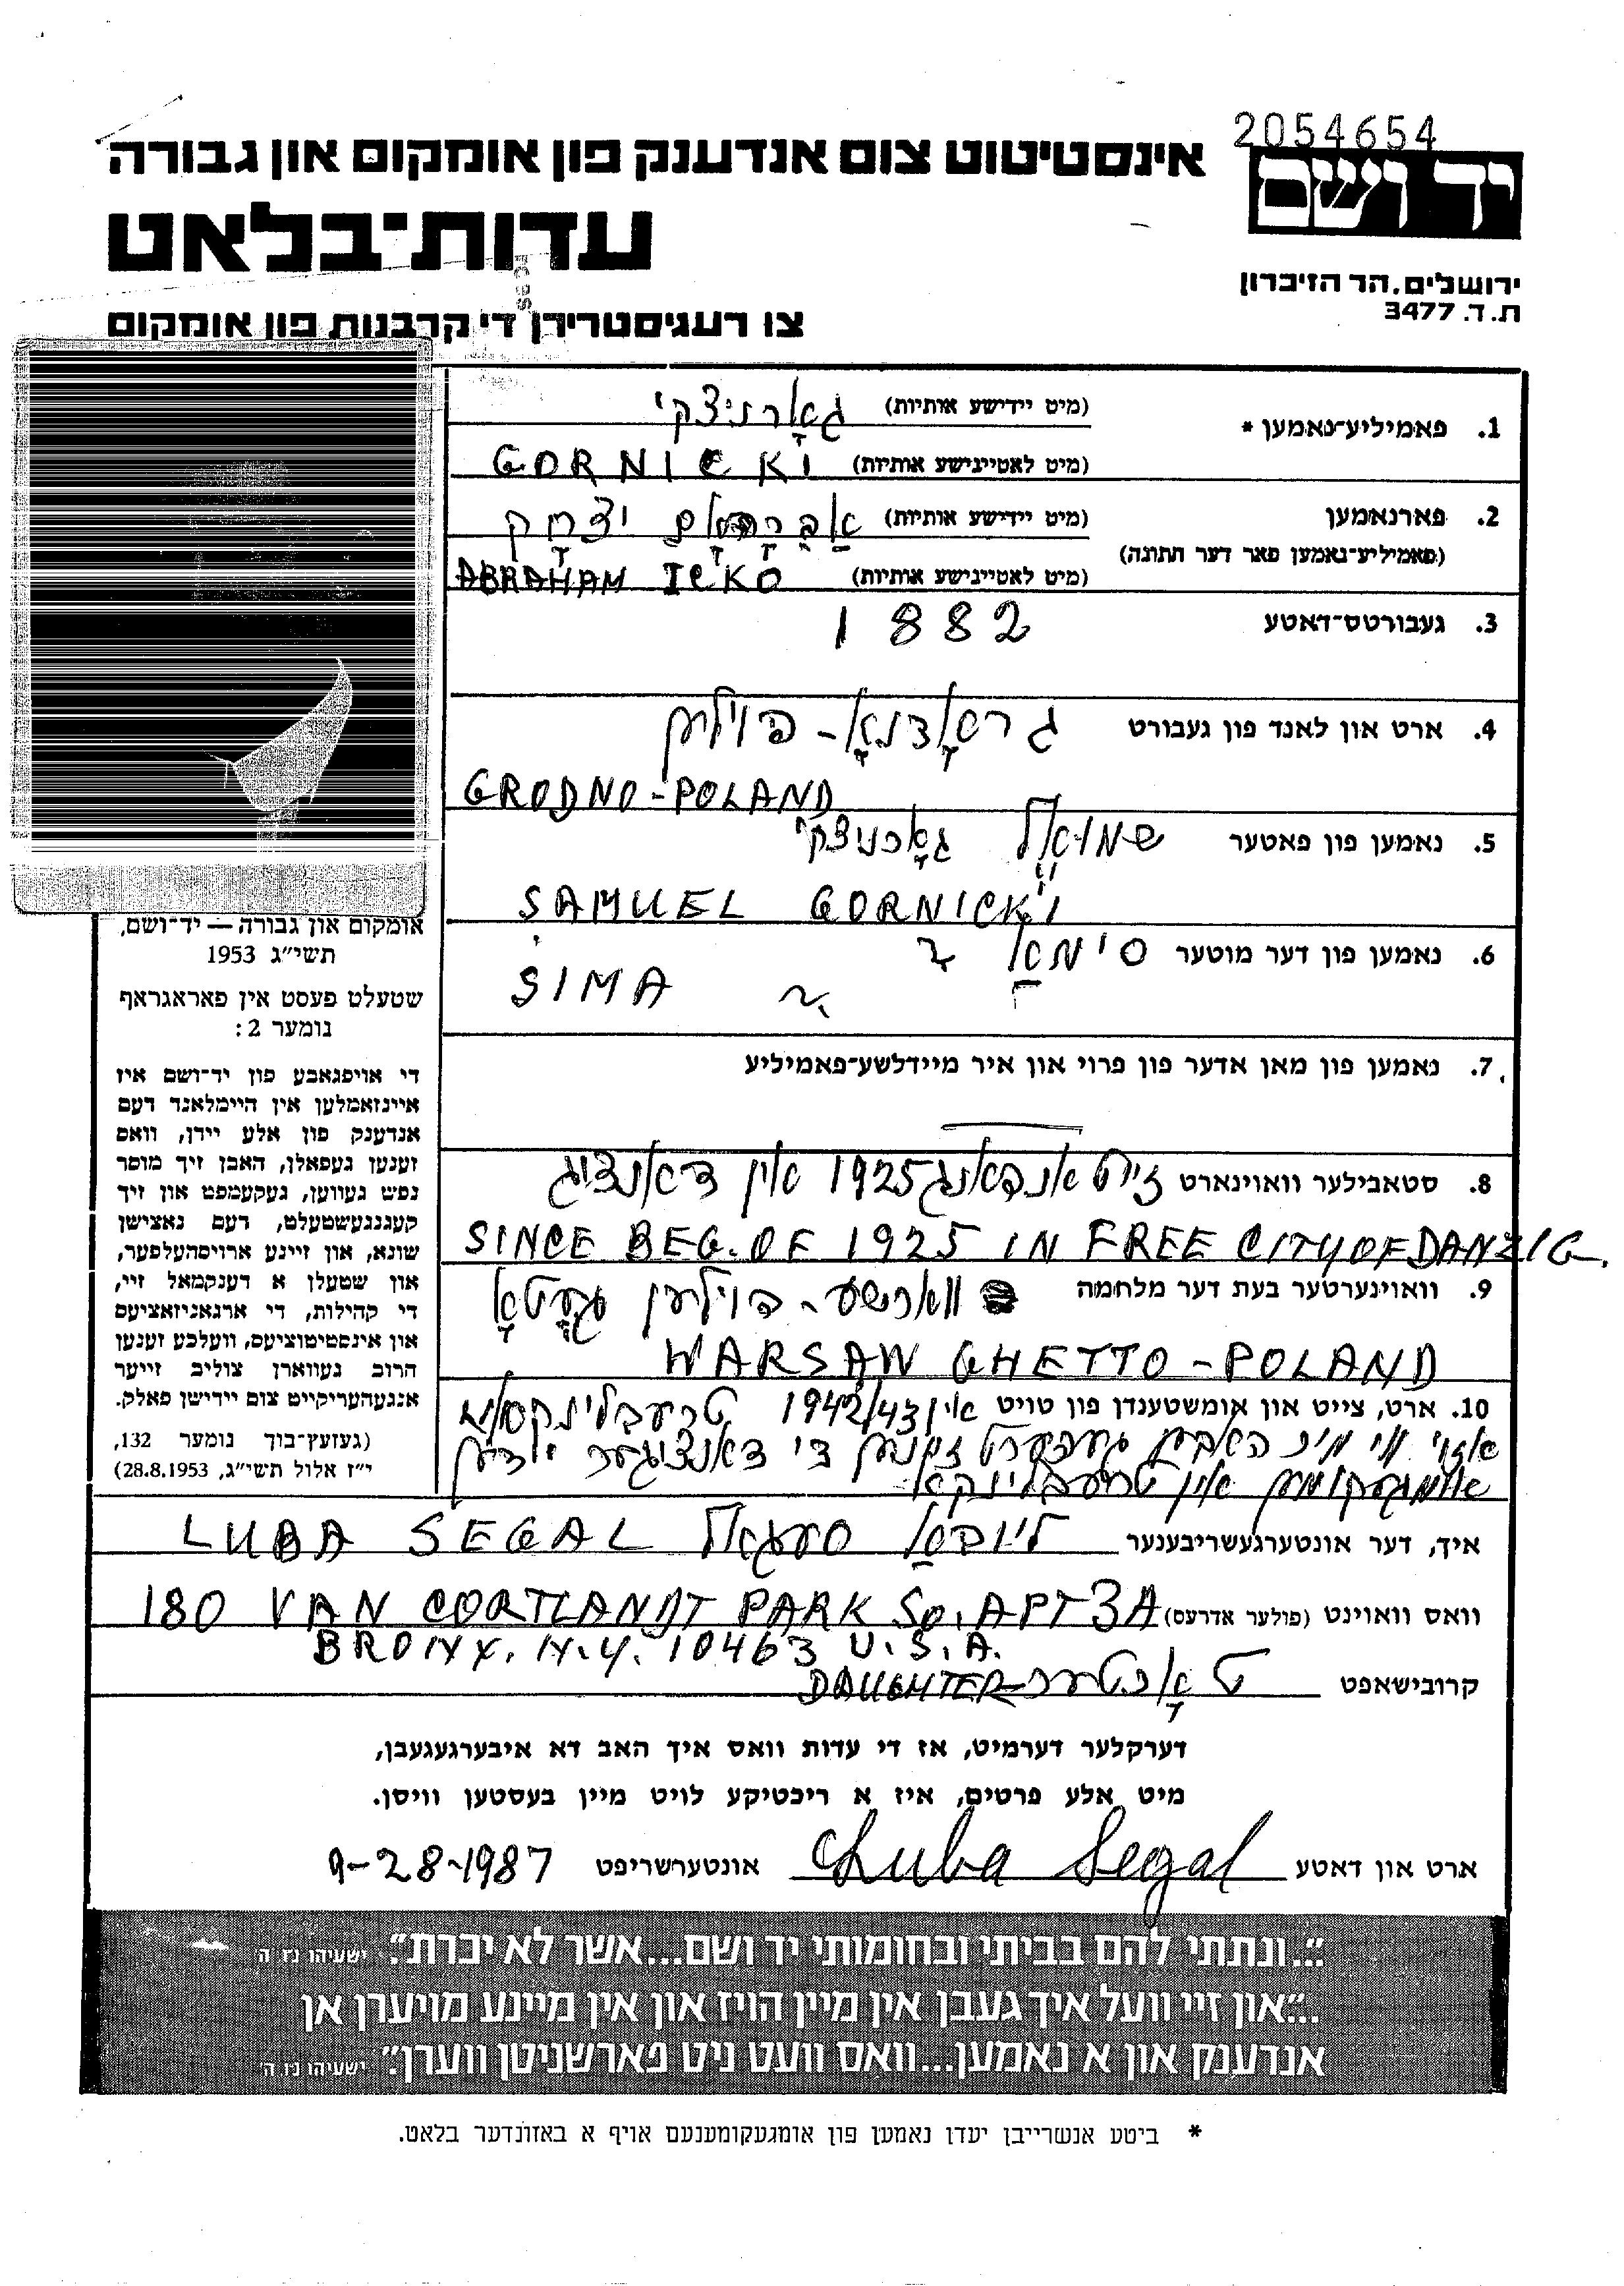 2054654
יד ושם
אינסטיטוט צום אנדענק פון אומקום און גבורה
עדות־בלאט
ירושלים, הר הזיכרון
ת. ד. 3477
צו רעגיסטרירן די קרבנות פון אומקום
1. פאמיליע־נאמען * (מיט יידישע אותיות) גאָרניצקי
(מיט לאטיינישע אותיות) GORNICKI
2. פארנאמען (מיט יידישע אותיות) אַבֿרָהָם יצחָק
(פאמיליע־נאמען פאר דער חתונה)
(מיט לאטיינישע אותיות) ABRAHAM ICKO
3. געבורטס־דאטע 1882
4. ארט און לאנד פון געבורט גראָדנאָ - פוילען
GRODNO - POLAND
5. נאמען פון פאטער שמואל גאָרניצקי
SAMUEL GORNICKI
6. נאמען פון דער מוטער סימאַ ?
SIMA ?
7. נאמען פון מאן אדער פון פרוי און איר מיידלשע־פאמיליע
—
8. סטאבילער וואוינארט זייט אנפאנג 1925 אין דאנציג
SINCE BEG. OF 1925 IN FREE CITY OF DANZIG.
9. וואוינערטער בעת דער מלחמה ווארשע - פוילען געטאָ
WARSAW GHETTO - POLAND
10. ארט, צייט און אומשטענדן פון טויט אין 1942/43 טרעבלינקא
אזוי ווי מיר האבען געהערט זיינען די דאנציגער יידען
אומגעקומען אין טרעבלינקא
אומקום און גבורה — יד־ושם,
תשי״ג 1953
שטעלט פעסט אין פאראגראף
נומער 2:
די אויפגאבע פון יד־ושם איז
איינזאמלען אין היימלאנד דעם
אנדענק פון אלע יידן, וואס
זענען געפאלן, האבן זיך מוסר
נפש געווען, געקעמפט און זיך
קעגנגעשטעלט, דעם נאצישן
שונא, און זיינע ארויסהעלפער,
און שטעלן א דענקמאל זיי,
די קהילות, די ארגאניזאציעס
און אינסטיטוציעס, וועלכע זענען
חרוב געווארן צוליב זייער
אנגעהעריקייט צום יידישן פאלק.
(געזעץ־בוך נומער 132,
י״ז אלול תשי״ג, 28.8.1953)
איך, דער אונטערגעשריבענער ליובאַ סעגאל LUBA SEGAL
וואס וואוינט (פולער אדרעס) 180 VAN CORTLANDT PARK SO. APT 3A
BRONX. N.Y. 10463 U.S.A.
קרובישאפט טאָכטער - DAUGHTER
דערקלער דערמיט, אז די עדות וואס איך האב דא איבערגעגעבן,
מיט אלע פרטים, איז א ריכטיקע לויט מיין בעסטען וויסן.
ארט און דאטע Luba Segal אונטערשריפט 9-28-1987
"...ונתתי להם בביתי ובחומותי יד ושם...אשר לא יכרת". ישעיהו נ״ז ה׳
"...און זיי וועל איך געבן אין מיין הויז און אין מיינע מויערן אן
אנדענק און א נאמען...וואס וועט ניט פארשניטן ווערן". ישעיהו נ״ז ה׳
* ביטע אנשרייבן יעדן נאמען פון אומגעקומענעם אויף א באזונדער בלאט.